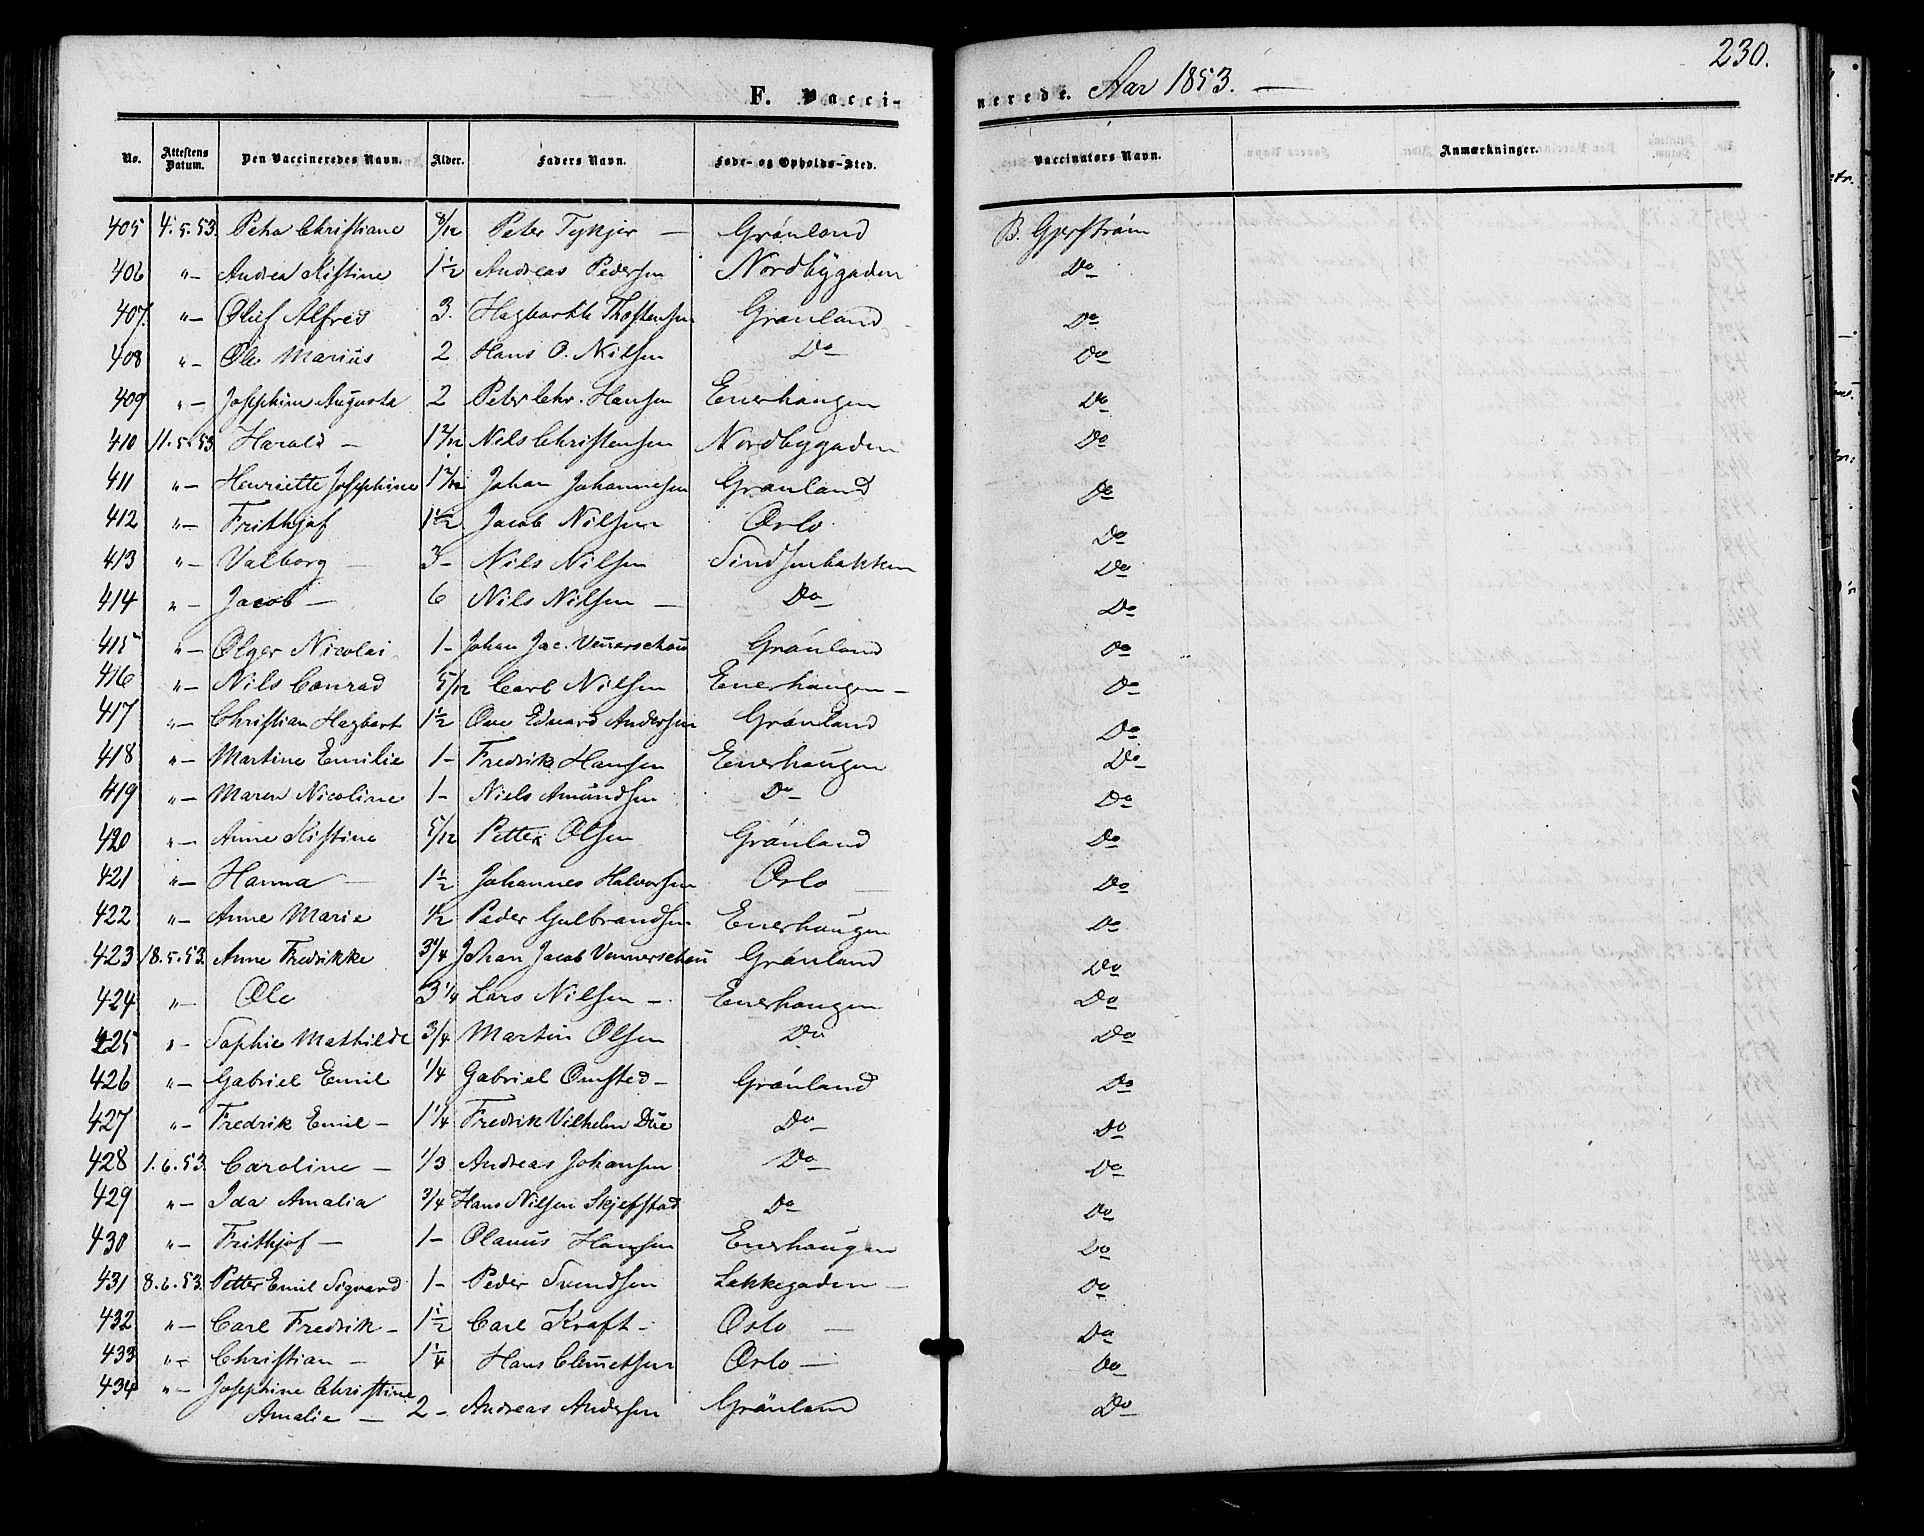 230.
F. Vacci-
nerede. Aar 1853. —
No. Attestens Datum. Den Vaccineredes Navn. Alder. Faders Navn. Føde- og Opholds-Sted. Vaccinators Navn. Anmærkninger.
405 4.5.53. Petra Christiane 8/12 Peter — Grønland B. Gjerstrøm
406 "— Andrea Kistine 1½ Andreas Pedersen Nordbygaden Do
407. "— Oluf Alfred 3. Hagbarth Thostensen Grønland Do
408 "— Ole Marius 2 Hans O. Nilsen Do Do
409 "— Josephine Augusta 2 Peter Chr. Hansen Enerhaugen Do
410 11.5.53 Harald — Nils Christensen Nordbygaden Do
411 "— Henriette Josephine Johan Johannesen Grønland Do
412 "— Frithjof 1½ Jacob Nilsen Oslo Do
413 "— Valborg — 3- Nils Nilsen Do
414 "— Jacob — 6 Nils Nilsen — Do Do
415 "— Olger Nicolai 1- Johan Jac. Vennerschou Grønland Do
416 "— Nils Conrad 5/12 Carl Nilsen Enerhaugen — Do
417 "— Christian Hagbart 1½ Ove Edvard Andersen Grønland Do
418 "— Martine Emilie 1- Fredrik Hansen Enerhaugen Do
419 "— Maren Nicoline 1- Niels Amundsen Do Do
420 "— Anne Kistine 5/12 Petter Olsen Grønland Do
421 "— Hanna — 1½ Johannes Halvorsen Oslo — Do
422 "— Anne Marie ½ Peder Gulbrandsen Enerhaugen Do
423 18.5.53. Anne Fredrikke 3¼ Johan Jacob Vennerschou Grønland Do
424 "— Ole 3¼ Lars Nilsen — Enerhaugen Do
425 "— Sophie Mathilde 3/4 Martin Olsen Do Do
426 "— Gabriel Emil 1/4 Gabriel Omsted — Grønland Do
427 "— Fredrik Emil — 1¼ Fredrik Vilhelm Due Do Do
428 1.6.53. Caroline — 1/3 Andreas Johansen Do Do
429 "— Ida Amalia 3/4 Hans Nilsen Skjefstad Do Do
430 "— Frithjof — 1- Olaus Hansen Enerhaugen Do
431 8.6.53. Petter Emil Sigvard 1- Peder Svendsen Lakkegaden — Do
432 "— Carl Fredrik — 1½ Carl Kraft — Oslo — Do
433 "— Christian — 1¼ Hans Clemetsen Oslo — Do
434 "— Josephine Christine
Amalie — 2- Andreas Andersen Grønland Do